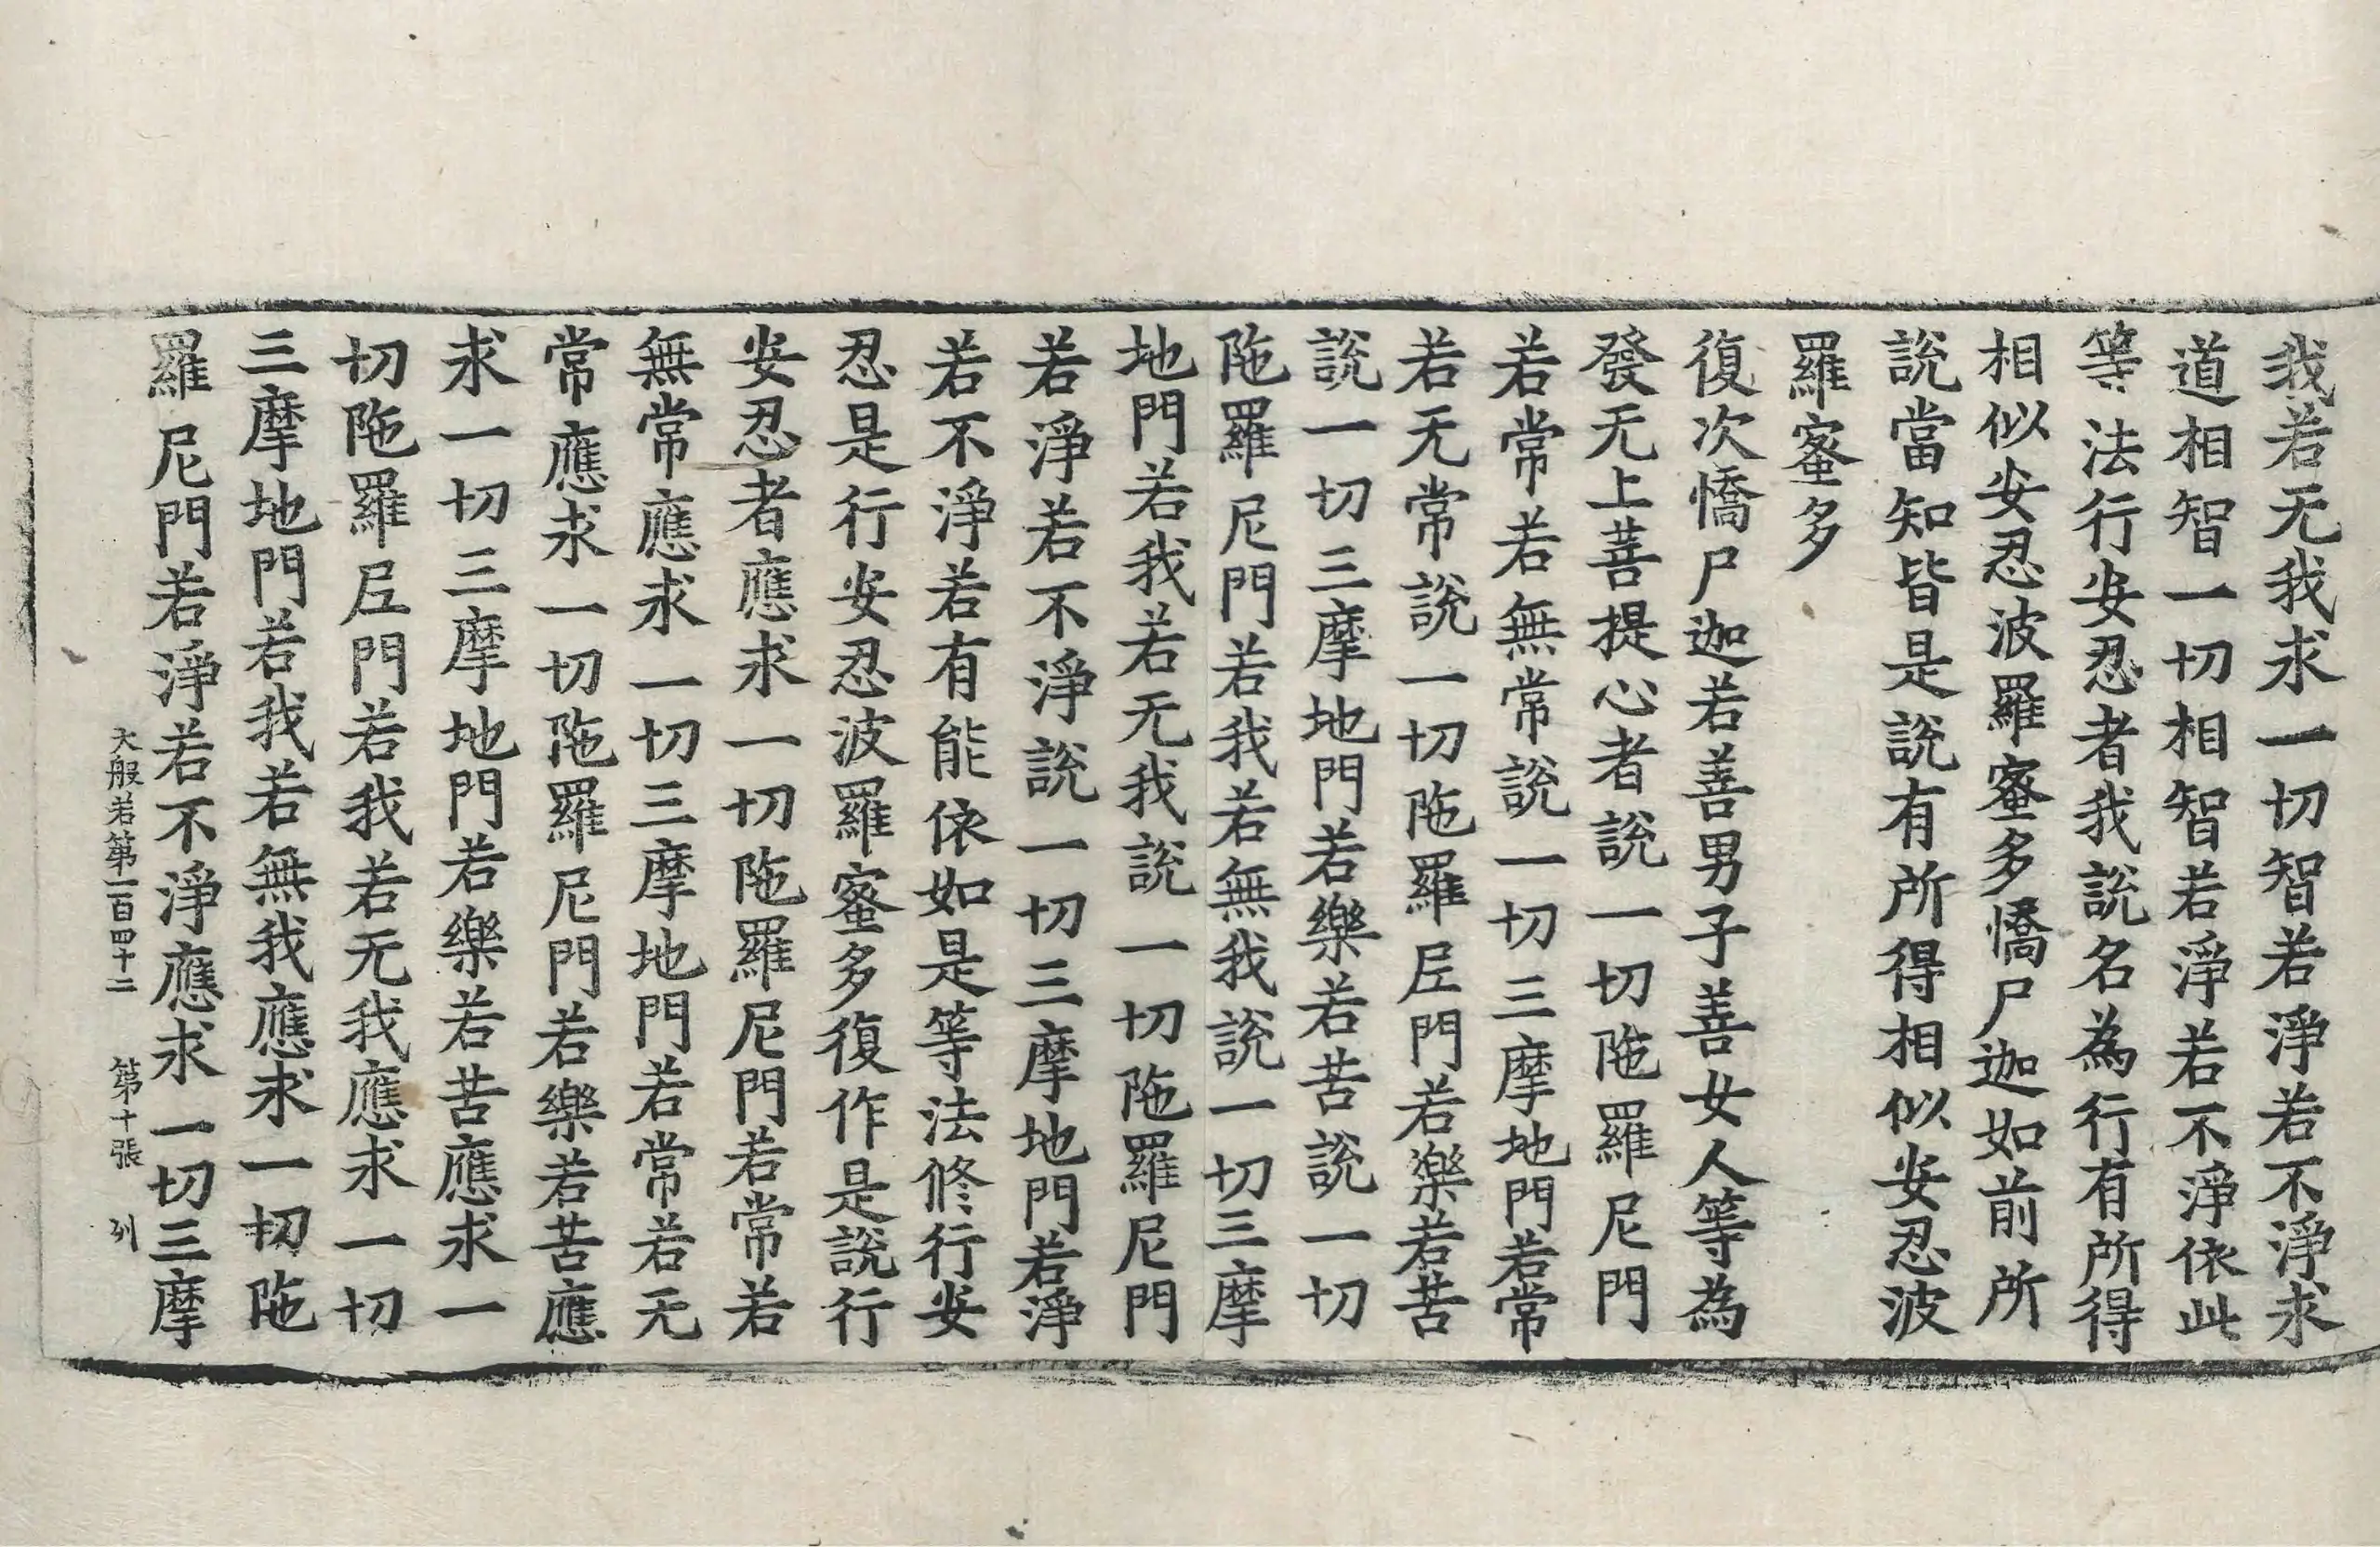 我若无我求一切智若淨若不淨求
道相智一切相智若淨若不淨依此
等法行安忍者我說名為行有所得
相似安忍波羅蜜多憍尸迦如前所
說當知皆是說有所得相似安忍波
羅蜜多
復次憍尸迦若善男子善女人等為
發无上菩提心者說一切陁羅尼門
若常若無常說一切三摩地門若常
若无常說一切陁羅尼門若樂若苦
說一切三摩地門若樂若苦說一切
陁羅尼門若我若無我說一切三摩
地門若我若无我說一切陁羅尼門
若淨若不淨說一切三摩地門若淨
若不淨若有能依如是等法修行安
忍是行安忍波羅蜜多復作是說行
安忍者應求一切陁羅尼門若常若
無常應求一切三摩地門若常若无
常應求一切陁羅尼門若樂若苦應
求一切三摩地門若樂若苦應求一
切陁羅尼門若我若无我應求一切
三摩地門若我若無我應求一切陁
羅尼門若淨若不淨應求一切三摩
大般若第一百四十二　第十張　列